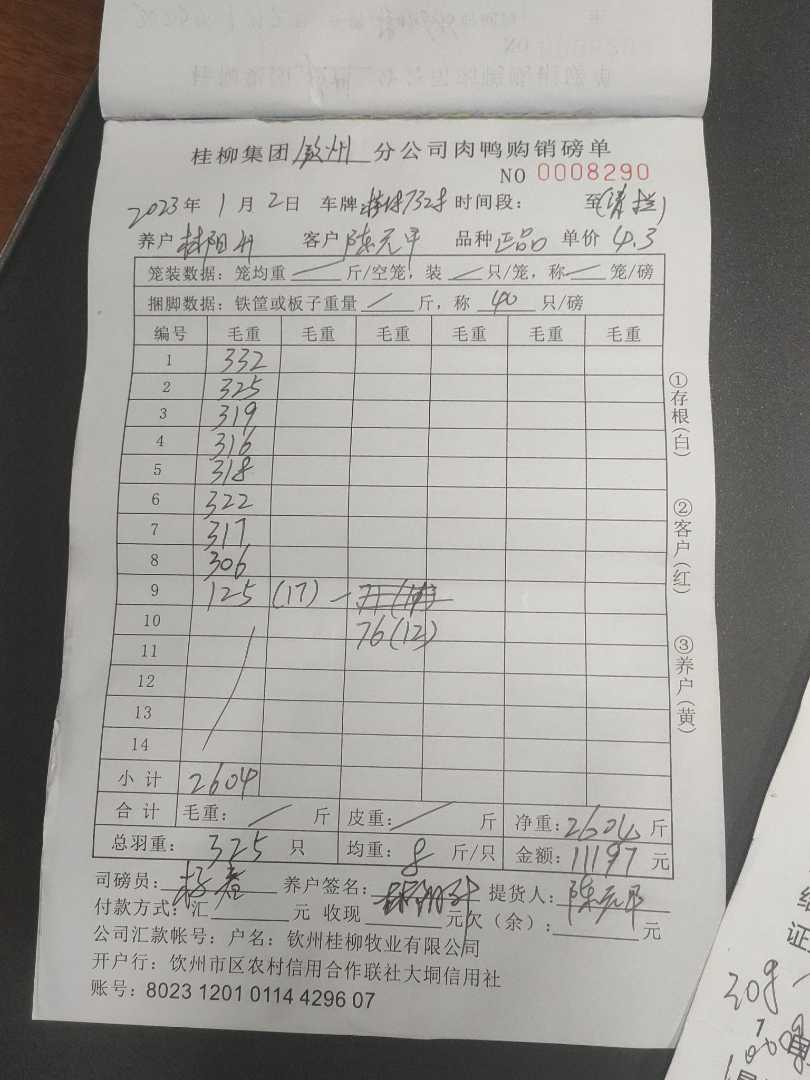 桂柳集团 钦州 分公司肉鸭购销磅单
NO 0008290
2023年 1月 2日 车牌: 732 时间段: 至(清栏)
养户 林阳 客户 陈元平 品种 正品 单价 4.3
笼装数据: 笼均重 / 斤/空笼, 装 / 只/笼, 称 / 笼/磅
捆脚数据: 铁筐或板子重量 / 斤, 称 40 只/磅
编号 毛重 毛重 毛重 毛重 毛重 毛重
1 332
2 325
3 319
4 316
5 318
6 322
7 317
8 306
9 125 (17) —
10 76(12)
11
12
13
14
小计 2604
合计 毛重: / 斤 皮重: / 斤 净重: 2604 斤
总羽重: 325 只 均重: 8 斤/只 金额: 11197 元
司磅员: 养户签名: 提货人: 陈元平
付款方式: 汇 元 收现 元欠(余): 元
公司汇款帐号: 户名: 钦州桂柳牧业有限公司
开户行: 钦州市区农村信用合作联社大垌信用社
账号: 8023 1201 0114 4296 07
①存根(白)
②客户(红)
③养户(黄)
证